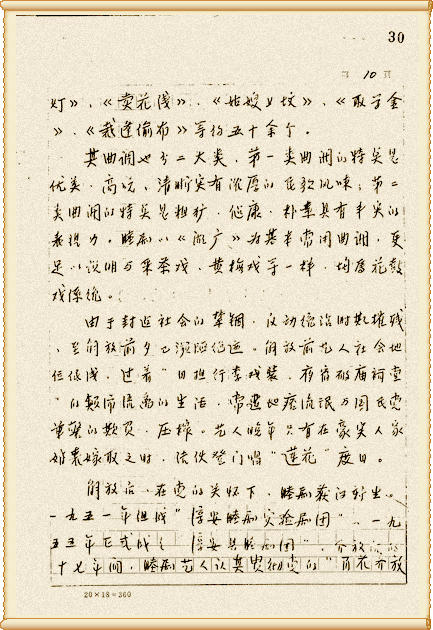 30
10
灯》、《卖花线》、《姑嫂上坟》、《取子金
》、《裁缝偷布》等约五十余个。
其曲调也分二大类，第一类曲调的特点是
优美、高亢、清晰富有浓厚的民歌风味；第二
类曲调的特点是粗犷、健康、朴素具有丰富的
表现力。睦剧以《湖广》为基本常用曲调，更
足以说明与采茶戏、黄梅戏等一样，均属花鼓
戏系统。
由于封建社会的禁锢，反动统治时期摧残
，至解放前夕已濒临绝迹。解放前艺人社会地
位低浅，过着"日担行李戏装，夜宿破庙祠堂
"的颠沛流离的生活，常遭地痞流氓与国民党
军警的欺负、压榨。艺人晚年只有在豪富人家
婚丧嫁娶之时，流伏登门唱"莲花"度日。
解放后，在党的关怀下，睦剧获得新生。
一九五一年组成"淳安睦剧实验剧团"、一九
五三年正式成立"淳安县睦剧团"，
十七年间，睦剧艺人认真贯彻党的"百花齐放
20×18=360